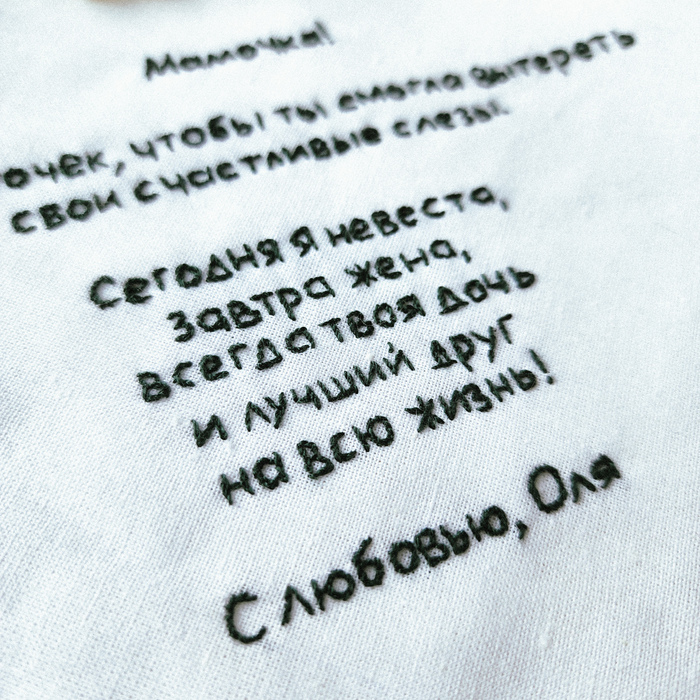 Мамочка!
очек, чтобы ты смогла вытереть
свои счастливые слёзы.
Сегодня я невеста,
завтра жена,
всегда твоя дочь
и лучший друг
на всю жизнь!
С любовью, Оля